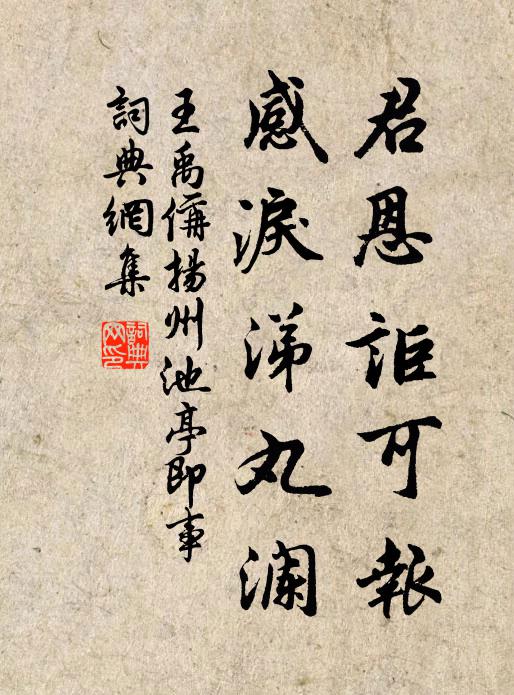 君恩詎可報
感淚涕丸瀾
王禹偁揚州池亭即事
詞典網集
詞典网印